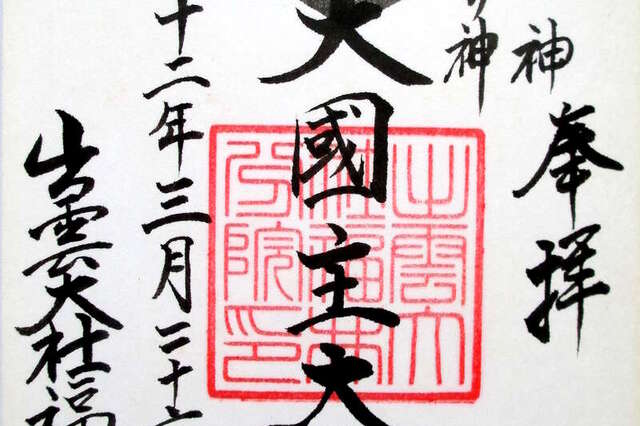 奉拝
神
り神
大國主大
十二年三月二十六
出雲大社福
出雲大
社福井
分院印